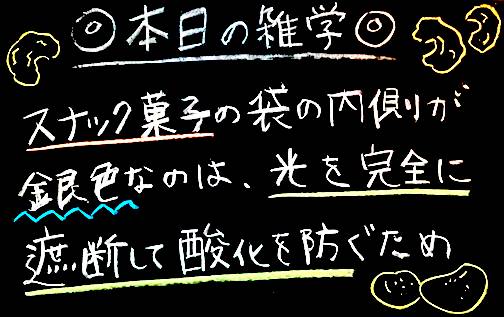 ◎本日の雑学◎
スナック菓子の袋の内側が
銀色なのは、光を完全に
遮断して酸化を防ぐため